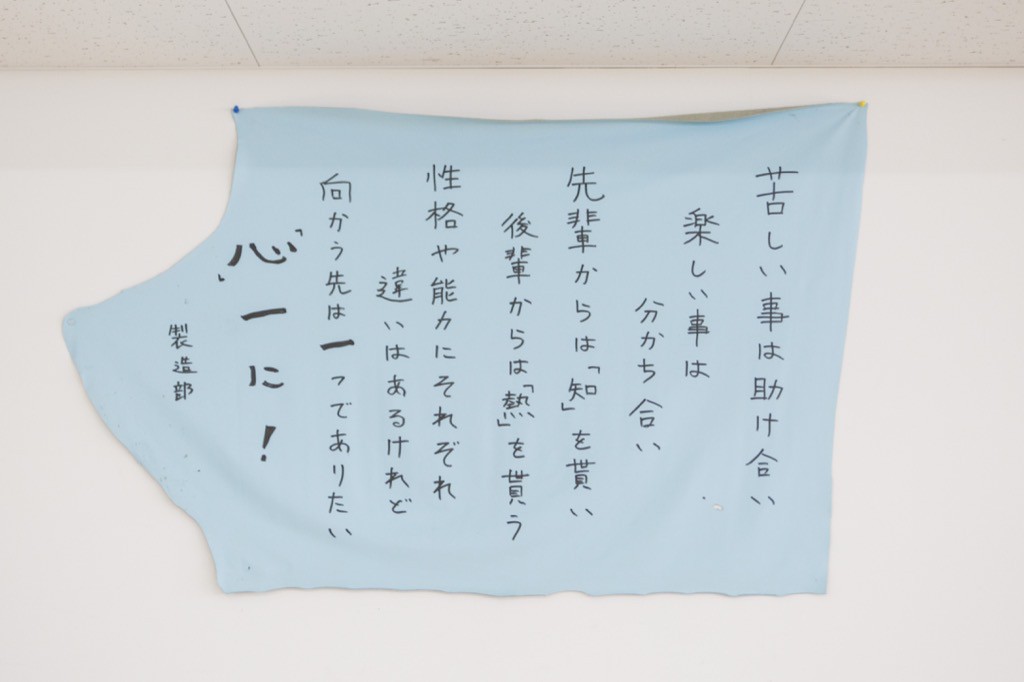 苦しい事は助け合い
楽しい事は
分かち合い
先輩からは「知」を貰い
後輩からは「熱」を貰う
性格や能力にそれぞれ
違いはあるけれど
向かう先は一つでありたい
「心」一に!
製造部